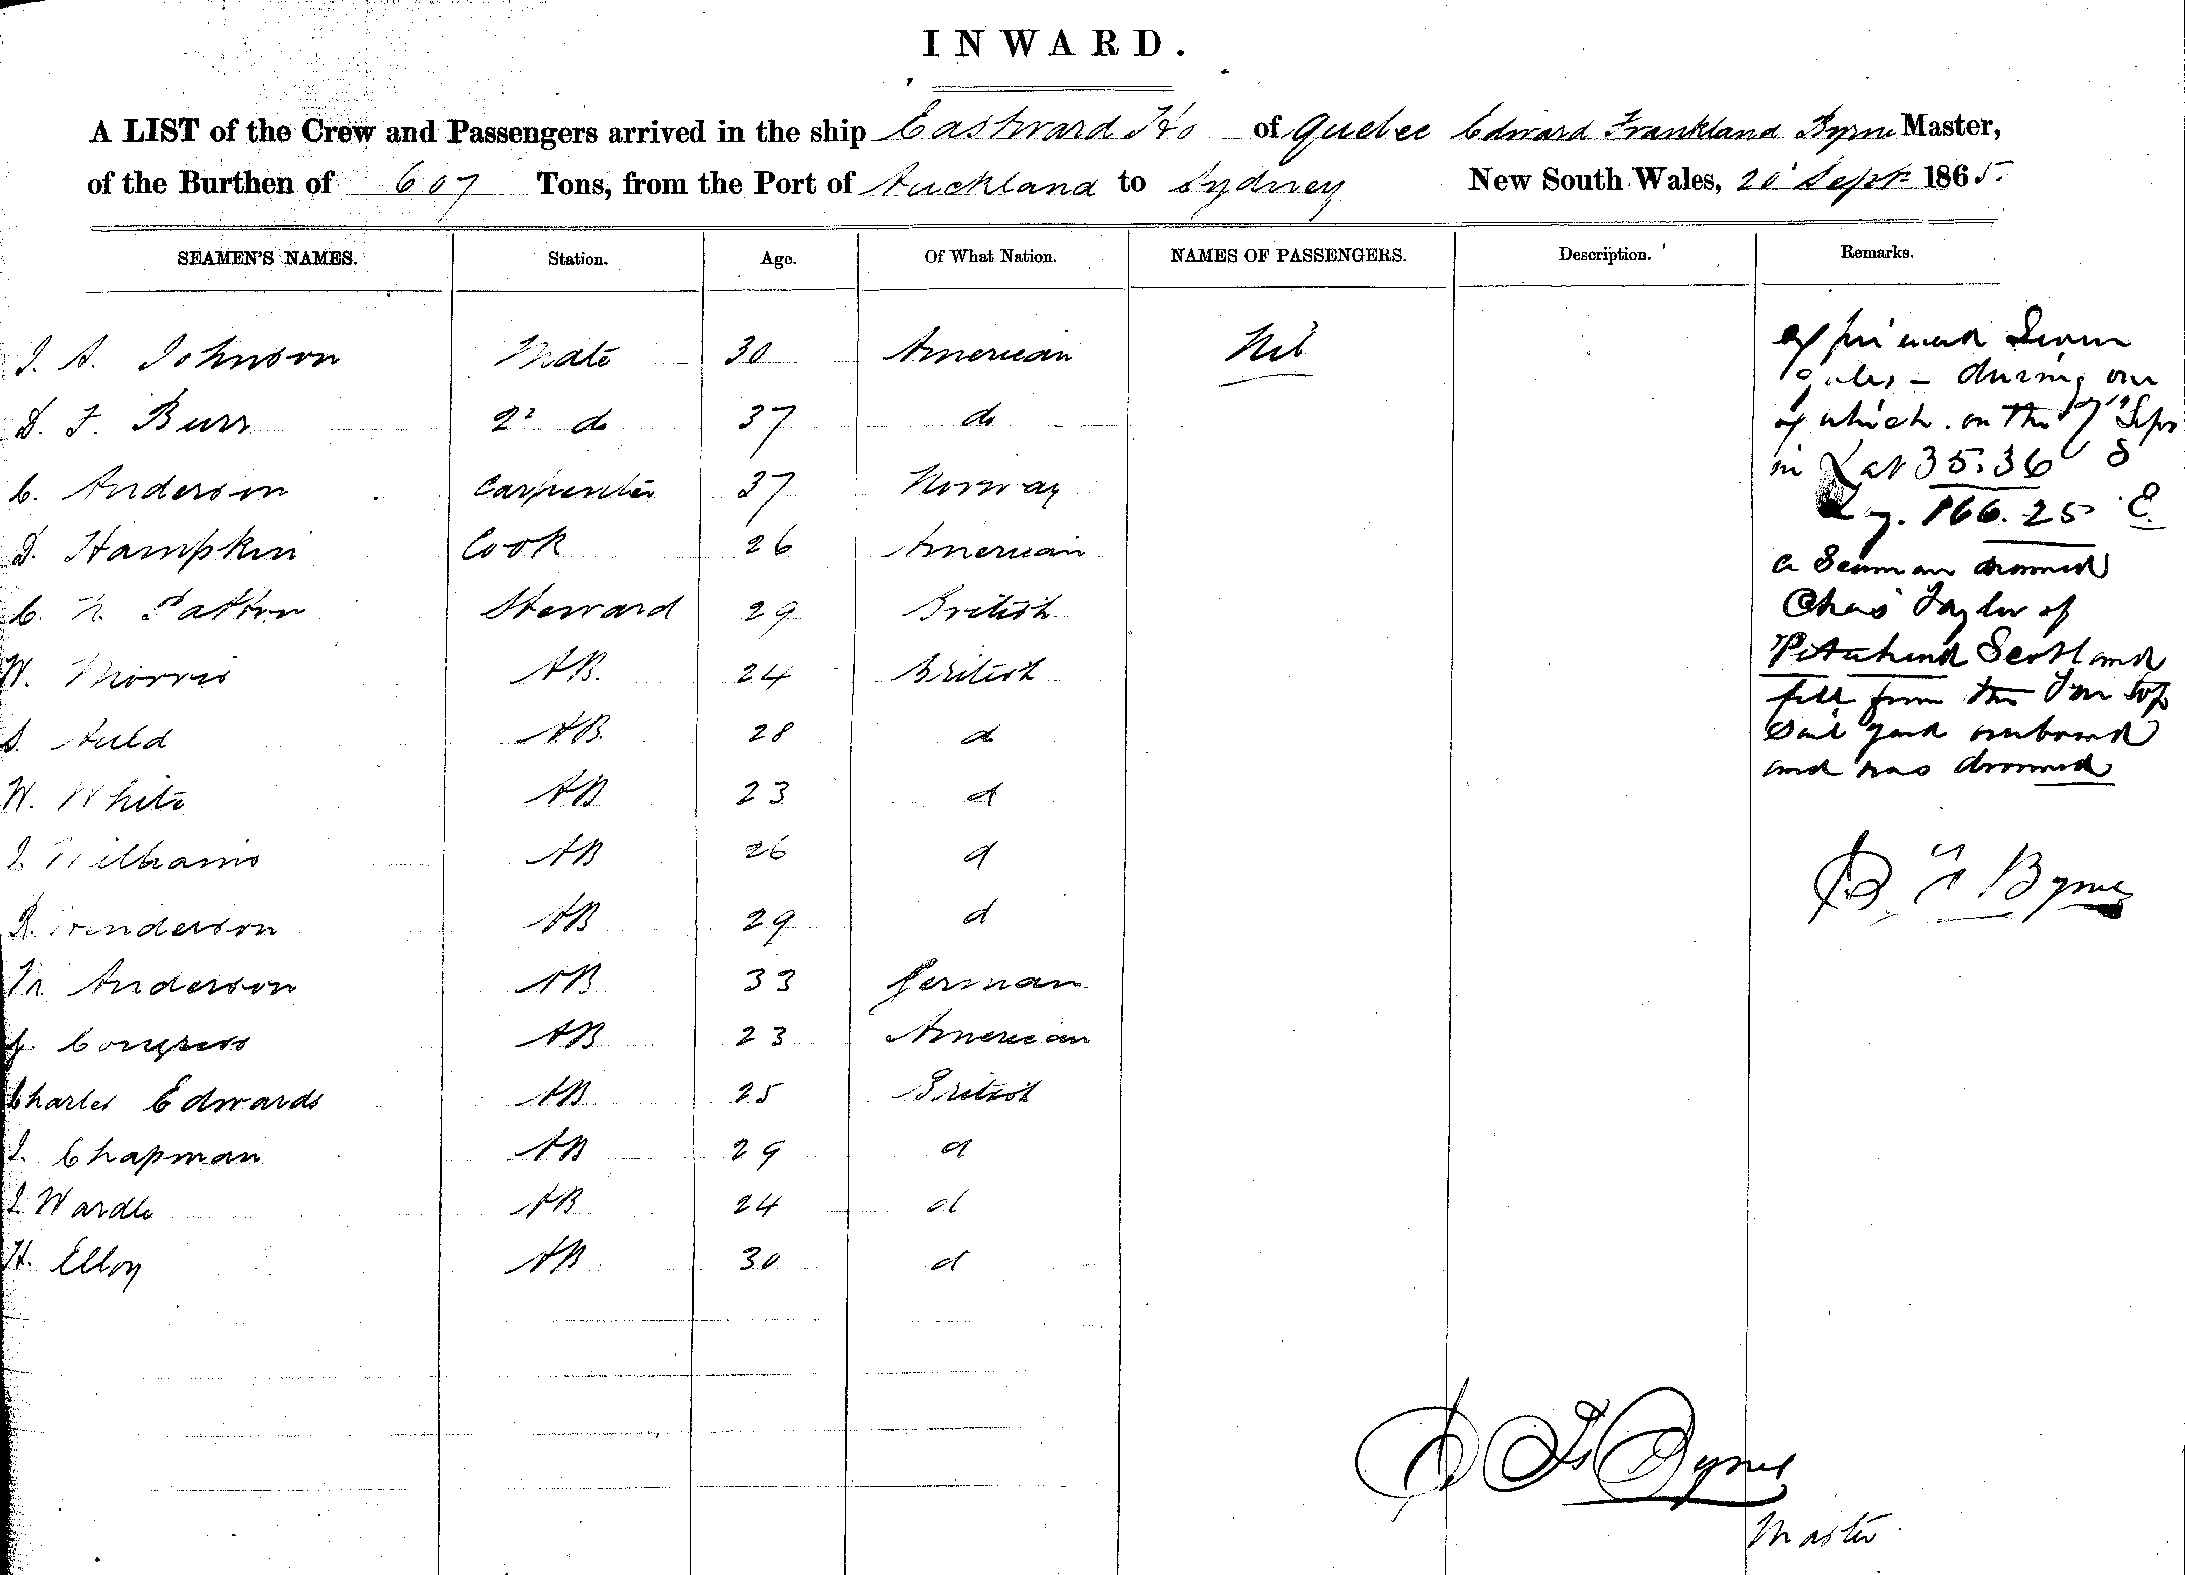 INWARD.
A LIST of the Crew and Passengers arrived in the ship Eastward Ho of Quebec Edward Frankland Byrne Master,
of the Burthen of 607 Tons, from the Port of Auckland to Sydney New South Wales, 20 Sept 1865.
SEAMEN'S NAMES. Station. Age. Of What Nation. NAMES OF PASSENGERS. Description. Remarks.
J. A. Johnson Mate 30 American Nil
D. F. Burr 2d do 37 do
C. Anderson Carpenter 37 Norway
D. Hampkin Cook 26 American
C. N. Patton Steward 29 British
W. Morris AB. 24 British
S. Auld AB. 28 d
W. White AB 23 d
J. Williams AB 26 d
R. Henderson AB 29 d
Anderson AB 33 German
Congress AB 23 American
Charles Edwards AB 25 British
J. Chapman AB 29 d
J. Wardle AB 24 d
H. Elloy AB 30 d
experienced
gales – during one
of which on the 7th Sept
in Lat 35.36 S
Lg. 166.25 E.
a Seaman named
Chas Taylor of
Scotland
fell from the Fore top
Sail yard overboard
and was drowned
E F Byrne
E F Byrne
Master